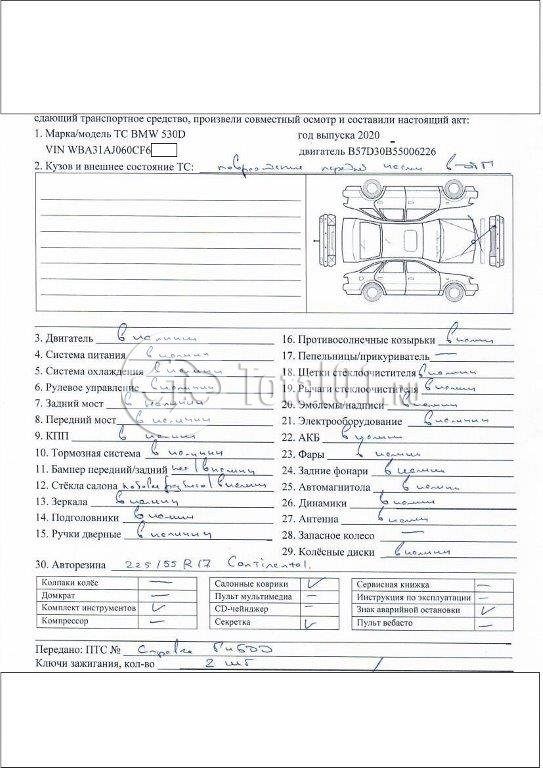 сдающий транспортное средство, произвели совместный осмотр и составили настоящий акт:
1. Марка/модель ТС BMW 530D год выпуска 2020
VIN WBA31AJ060CF6 двигатель B57D30B55006226
2. Кузов и внешнее состояние ТС: повреждение передней части
3. Двигатель в наличии
4. Система питания в наличии
5. Система охлаждения в наличии
6. Рулевое управление в наличии
7. Задний мост в наличии
8. Передний мост в наличии
9. КПП в наличии
10. Тормозная система в наличии
11. Бампер передний/задний нет/в наличии
12. Стёкла салона лобовое /в наличии
13. Зеркала в наличии
14. Подголовники в наличии
15. Ручки дверные в наличии
16. Противосолнечные козырьки в наличии
17. Пепельницы/прикуриватель —
18. Щетки стеклоочистителя в наличии
19. Рычаги стеклоочистителя в наличии
20. Эмблемы/надписи в наличии
21. Электрооборудование в наличии
22. АКБ в наличии
23. Фары в наличии
24. Задние фонари в наличии
25. Автомагнитола в наличии
26. Динамики в наличии
27. Антенна в наличии
28. Запасное колесо —
29. Колёсные диски в наличии
30. Авторезина 225/55 R17 Continental.
Колпаки колёс —
Домкрат —
Комплект инструментов ✓
Компрессор —
Салонные коврики ✓
Пульт мультимедиа —
CD-чейнджер —
Секретка ✓
Сервисная книжка —
Инструкция по эксплуатации —
Знак аварийной остановки ✓
Пульт вебасто —
Передано: ПТС № Справка ГИБДД
Ключи зажигания, кол-во 2 шт